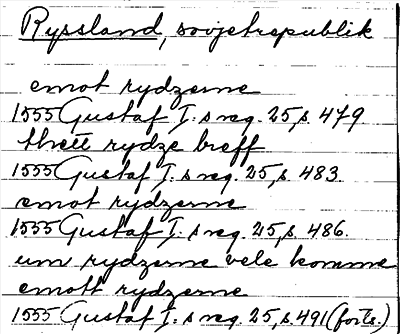 Ryssland, sovjetrepublik
emot rydzerne
1555 Gustaf I:s reg. 25, s. 479
thett rydze breff
1555 Gustaf I:s reg. 25, s. 483.
emot rydzerne
1555 Gustaf I:s reg. 25, s. 486.
um rydzerne vele komme
emott rydzerne
1555 Gustaf I:s reg. 25, s. 491 (forts.)